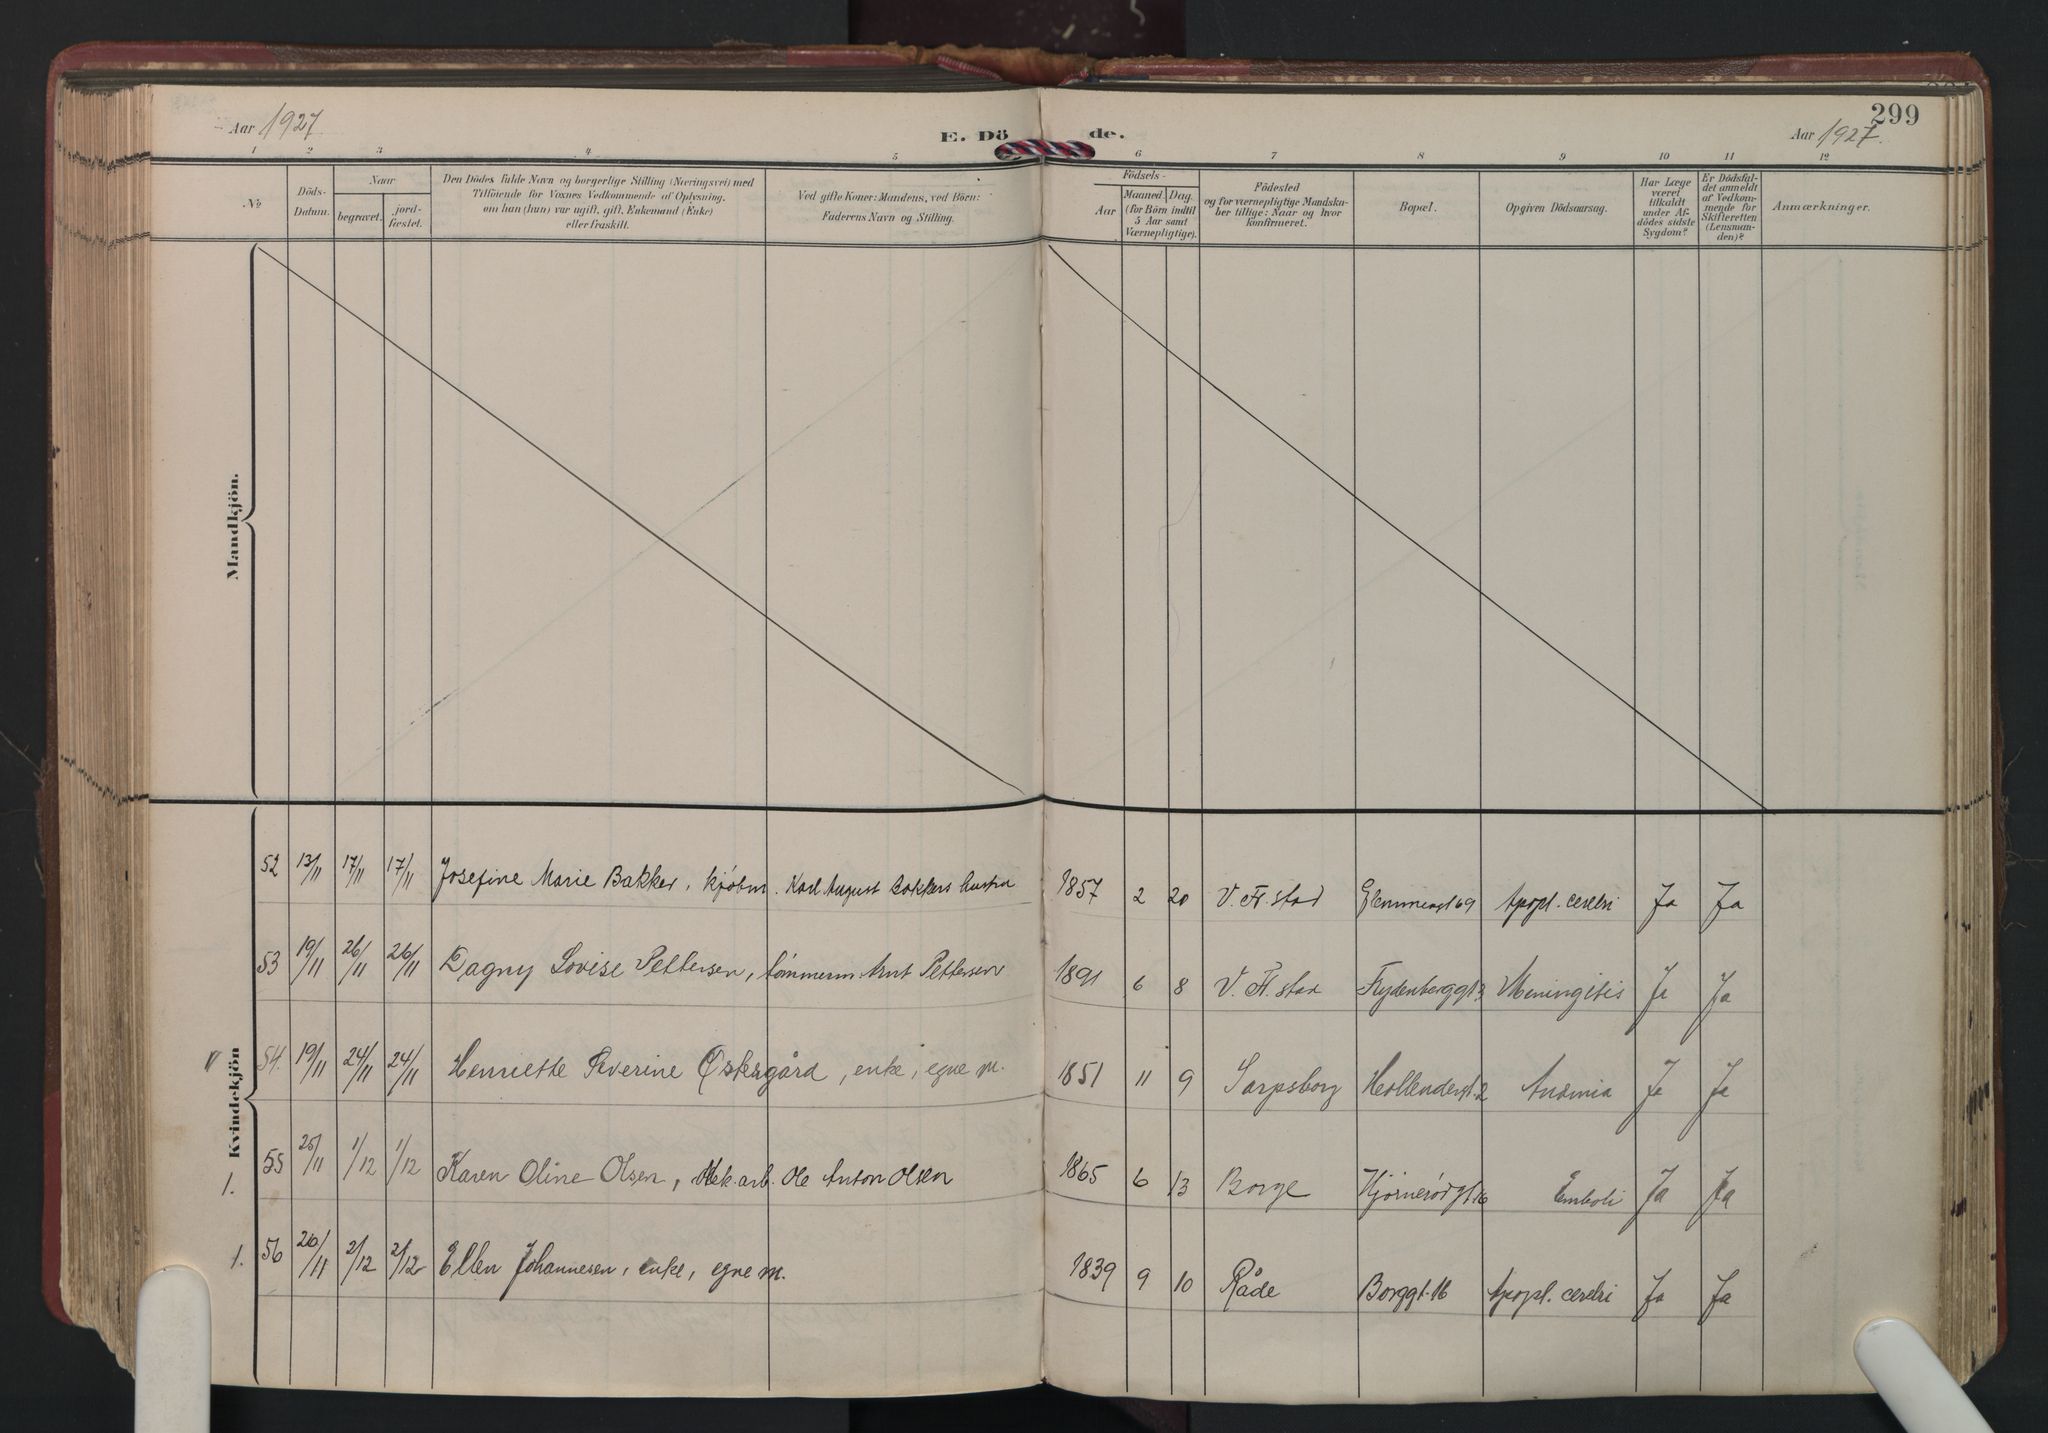 299
Aar 1927
E. Dö de.
Aar 1927.
1 2 3 4 5 6 7 8 9 10 11 12
№
Döds-
Datum.
Naar
begravet.
jord-
fæstet.
Den Dödes fulde Navn og borgerlige Stilling (Næringsvei) med
Tilföiende for Voxnes Vedkommende af Oplysning,
om han (hun) var ugift, gift, Enkemand (Enke)
eller fraskilt.
Ved gifte Koner: Mandens, ved Börn:
Faderens Navn og Stilling.
Födsels-
Aar
Maaned.
Dag.
(for Börn indtil
5 Aar samt
Værnepligtige).
Födested
og for værnepligtige Mandska-
ber tillige: Naar og hvor
konfirmeret.
Bopæl.
Opgiven Dödsaarsag.
Har Læge
været
tilkaldt
under Af-
dödes sidste
Sygdom?
Er Dödsfal-
det anmeldt
af Vedkom-
mende for
Skifteretten
(Lensman-
den)?
Anmærkninger.
Mandkjön.
Kvindekjön
52 13/11 17/11 17/11 Josefine Marie Bakker, kjøbm. Karl August Bakkers hustru 1857 2 20 V. Fr.stad Glemmengt 69 Apopl. cerebri Ja Ja
53 19/11 26/11 26/11 Dagny Lovise Pettersen, tømmerm. Arnt Pettersen 1891 6 8 V. Fr.stad Frydenberggt 3 Meningitis Ja Ja
54. 19/11 24/11 24/11 Henriette Severine Østergård, enke, egne m. 1851 11 9 Sarpsborg Hollendergt. 2 Anæmia Ja Ja
1. 55 25/11 1/12 1/12 Karen Oline Olsen, Mek. arb. Ole Anton Olsen 1865 6 13 Borge Hjørnerødgt 16 Emboli Ja Ja
1. 56 26/11 2/12 2/12 Ellen Johannesen, enke, egne m. 1839 9 10 Råde Borggt. 16 Apopl. cerebri Ja Ja